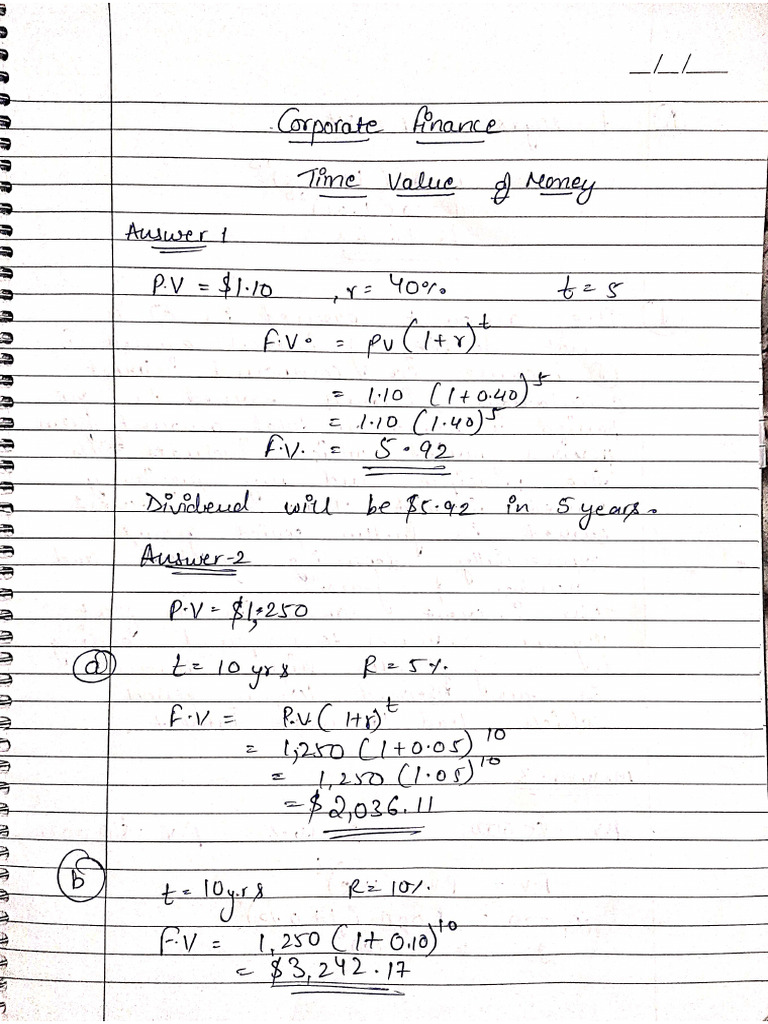 _/_/__
Corporate finance
Time Value of Money
Answer 1
P.V = $1.10 , r = 40% t = 5
F.V. = PV (1+r)^t
= 1.10 (1+0.40)^5
= 1.10 (1.40)^5
F.V. = 5.92
Dividend will be $5.92 in 5 years.
Answer-2
P.V = $1,250
(a) t = 10 yrs R = 5%.
F.V = P.V (1+r)^t
= 1,250 (1+0.05)^10
= 1,250 (1.05)^10
= $2,036.11
(b) t = 10yrs R = 10%.
F.V = 1,250 (1+0.10)^10
= $3,242.17